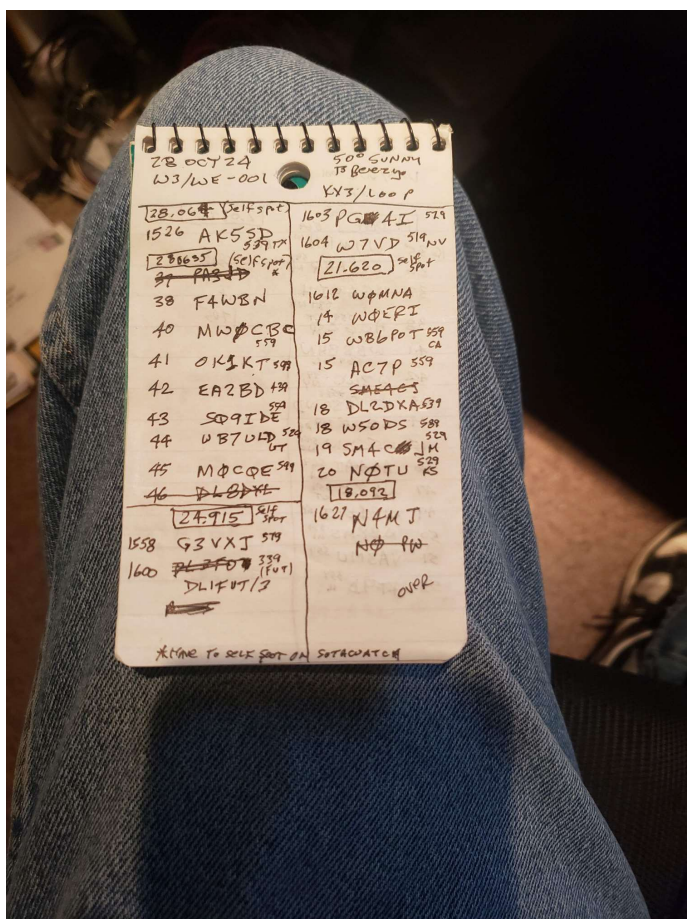 28 OCT 24
W3/WE-001
50° SUNNY
TO Breezy
KX3/LOOP
28.064 (Self spot)
1526 AK5SD
539 TX
280635 (Self spot)
*
38 F4WBN
40 MWØCBC
559
41 OK1KT 599
42 EA2BD 439
43 SQ9IDE
559
44 WB7ULD 529
UT
45 MØCQE 599
46 DL8DXL
24.915 Self
spot
1558 G3VXJ 579
1600 339
(FUT)
DL1FUT/3
1603 PG 4I 529
1604 W7VD 519 NV
21.620 Self
spot
1612 WØMNA
14 WØERI
15 WB6POT 559
CA
15 AC7P 559
SME4CJ
18 DL2DXA 539
18 W5ODS 589
19 SM4C JM 529
20 NØTU 529
KS
18.092
1627 N4MJ
NØ PW
OVER
* HAVE TO SELF SPOT ON SOTAWATCH